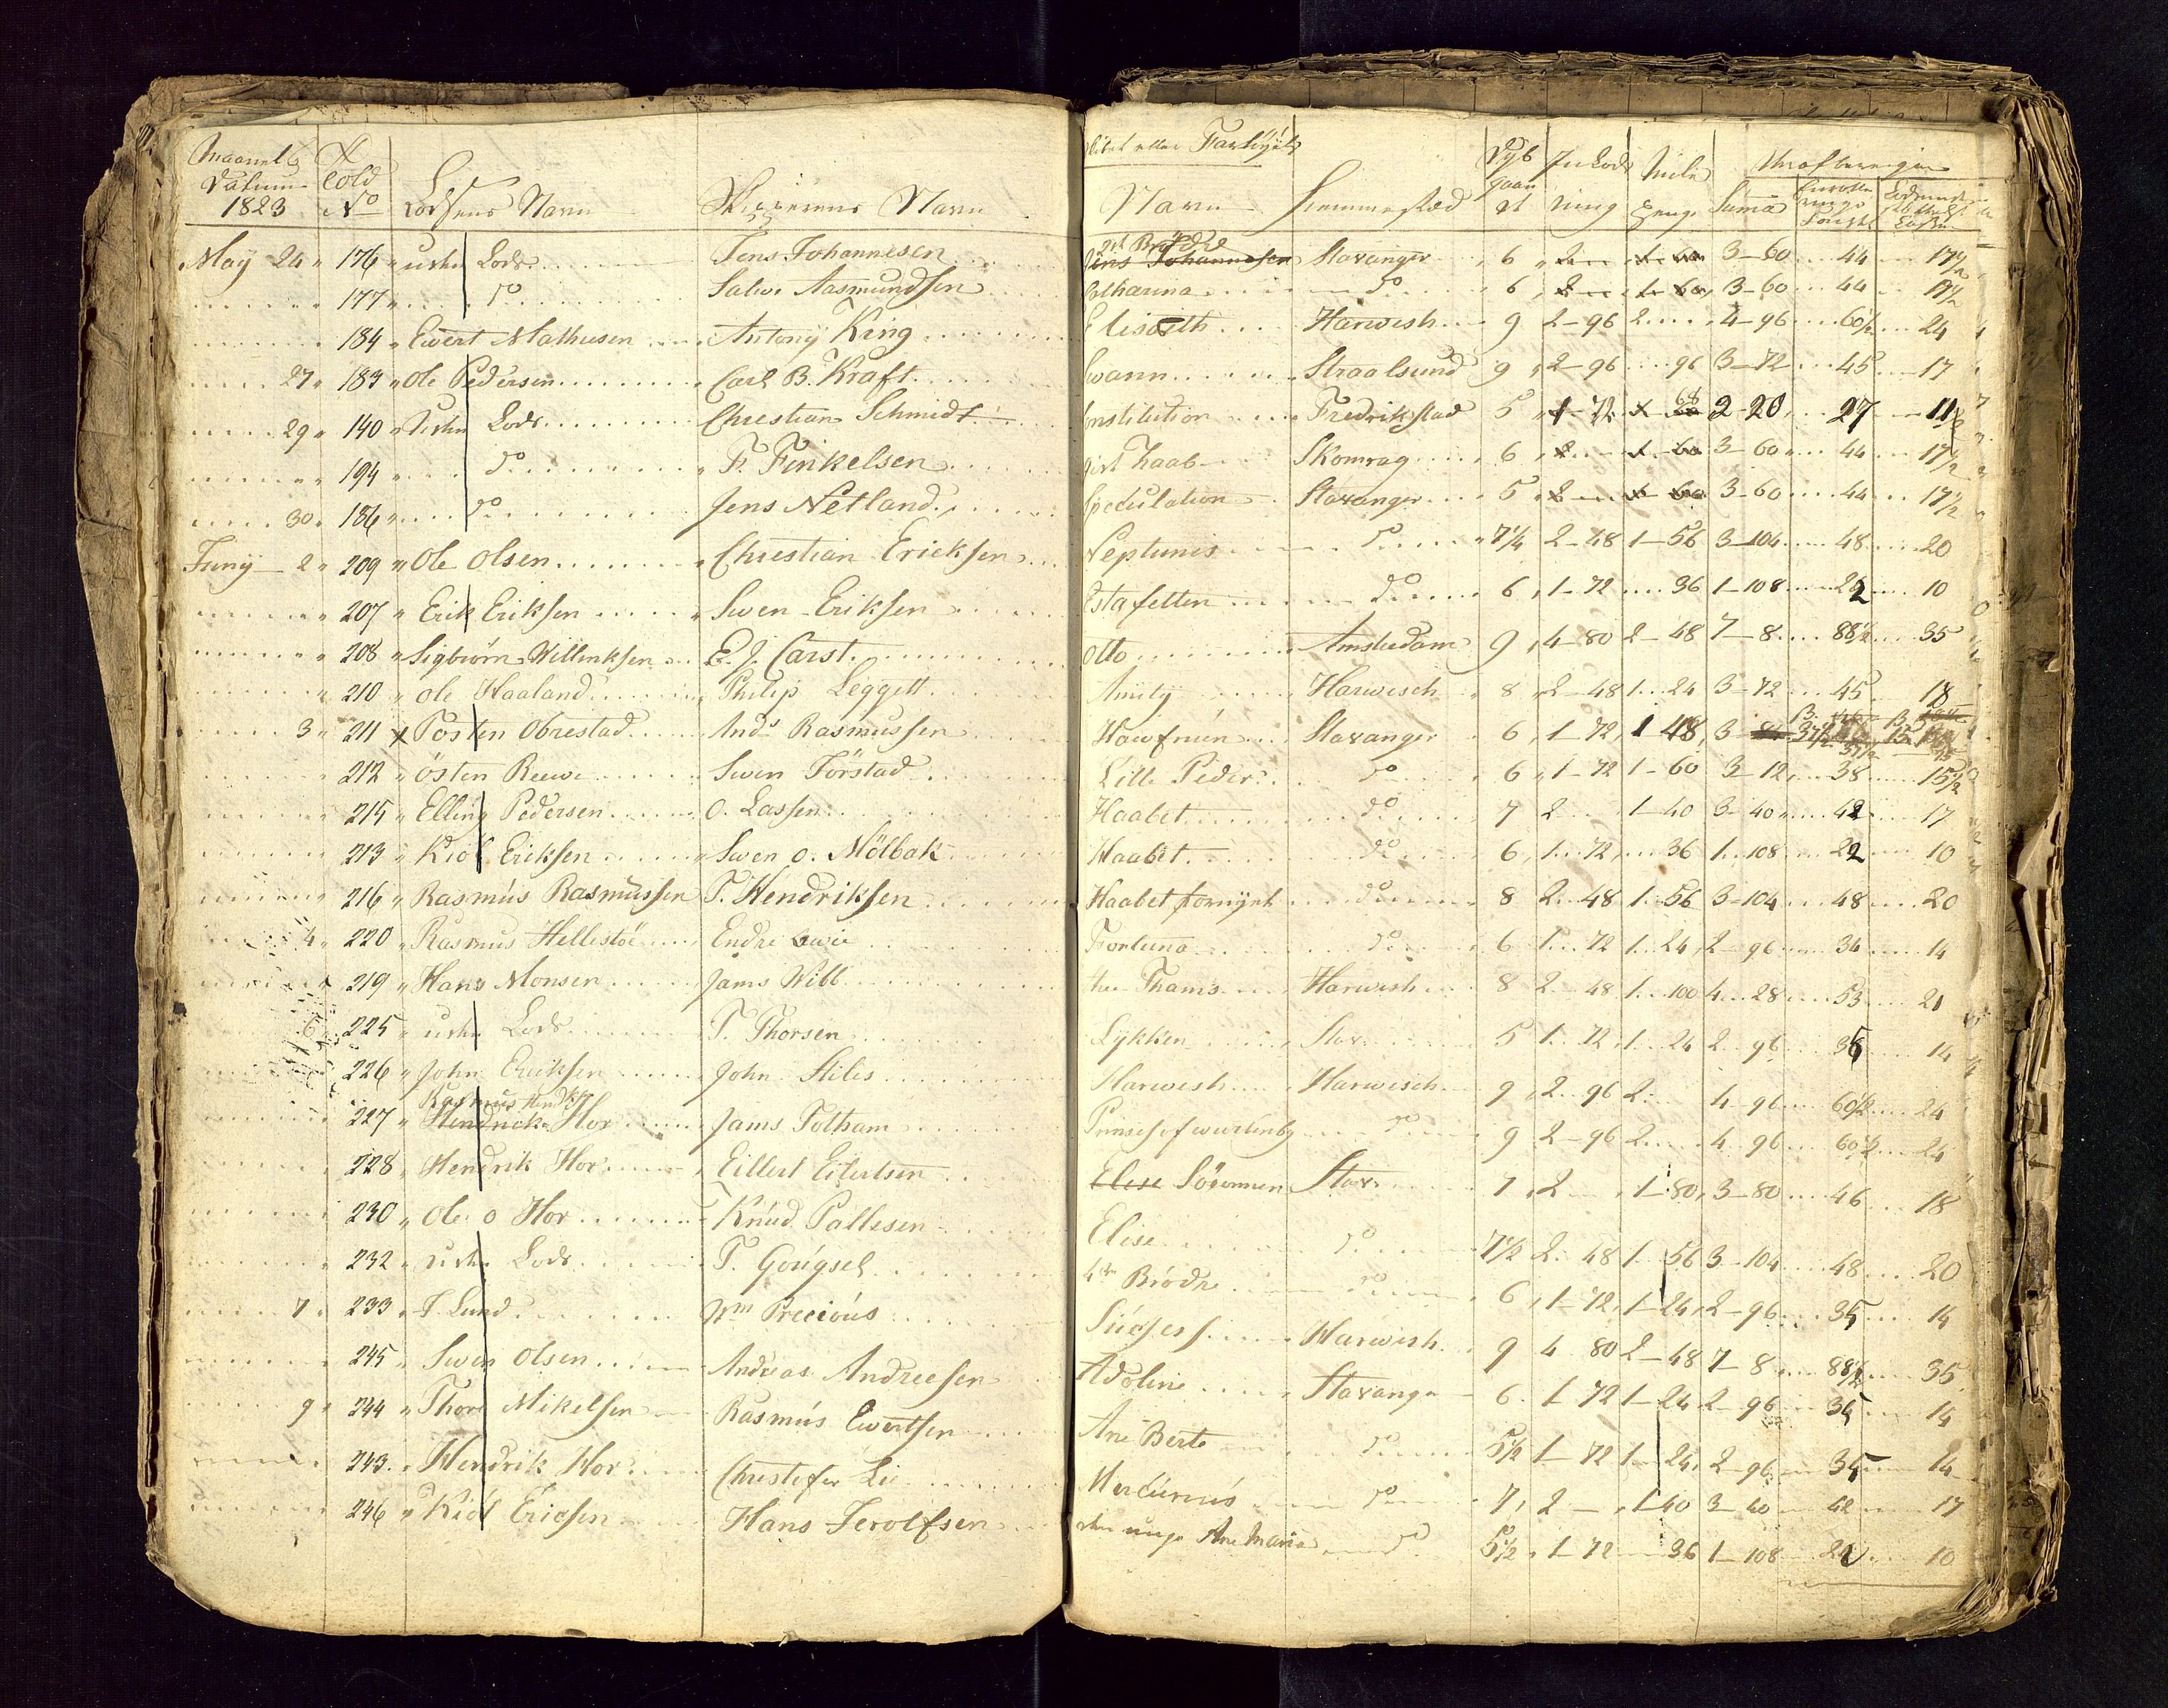 Maaned
Datum Told
1823 No Lodsens Navn Skipperens Navn
May 24 176 Lods Jens Johannesen
177 do Salve Aasmundsen
184 Ewert Mathiesen Antony King
27 183 Ole Pedersen Carl B. Kraft
29 140 Lods Christian Schmidt
194 do F. Finkelsen
30 186 do Jens Netland
Juny 2 209 Ole Olsen Christian Ericksen
207 Erik Eriksen Swen Eriksen
208 Sigbiörn Willinksen E. J. Carst
210 Ole Haaland Philip Leggett
3 211 x Tosten Obrestad Ands Rasmussen
212 östen Reewe Swen Törstad
215 Elling Pedersen O. Lassen
213 Kiöl Eriksen Swen O. Mölbak
216 Rasmus Rasmussen T. Hendriksen
4 220 Rasmus Hellestöe Endre
219 Hans Monsen Jams Wibb
6 225 Lods T. Thorsen
226 John Eriksen John Stiles
Rasmus Hendk
227 Hendrick Hor Jams Totham
228 Hendrik Hor Eillert Eilertsen
230 Ole O Hor Knud Pallesen
232 Lods T. Gougsel
7 233 T. Lund Wm Precious
245 Swen Olsen Andreas Andreesen
9 244 Thore Mikelsen Rasmus Ewertsen
243 Hendrik Hor Christofer Lie
246 Kiöl Ericsen Hans Jerolfsen
eller Fartöyets
Navn Hiemmestæd Summa
Brödre
Jens Johannesen Stavanger 6 2 1 60 3-60 44 17 1/2
Catharina do 6 2 1 60 3-60 44 17 1/2
Elisabeth Harwish 9 2-96 2 4-96 60 1/2 24
Swann Straalsund 9 2-96 96 3-72 45 17
Constitution Fredrikstad 5 1-72 68 2-20 27 11
Haab Skomrag 6 2 1 60 3-60 44 17 1/2
Speculation Stavanger 5 2 1 60 3-60 44 17 1/2
Neptunis do 7 1/4 2-48 1-56 3-104 48 20
Estafetten do 6 1-72 36 1-108 22 10
Otto Amsterdam 9 4-80 2-48 7-8 88 1/2 35
Amity Harwisch 8 2-48 1 24 3-72 45 18
Hawfruen Stavanger 6 1-72 1 48 3 37 1/2 15
Lille Peder do 6 1-72 1-60 3-12 38 15 1/2
Haabet do 7 2 1-40 3-40 42 17
Haabet do 6 1 72 36 1 108 22 10
Haabet fornyet do 8 2 48 1 56 3-104 48 20
Fortuna do 6 1 72 1 24 2-96 34 14
Thams Harwish 8 2 48 1 100 4 28 53 21
Lykken Stav 5 1 72 1 24 2 96 35 14
Harwish Harwisch 9 2 96 2 4 96 60 1/2 24
Prinsef of wurtenbg do 9 2-96 2 4 96 60 1/2 24
Elese Söeormen Stav 7 2 1-80 3-80 46 18
Elise do 7 1/2 2 48 1 56 3-104 48 20
4re Brödre do 6 1-72 1-24 2-96 35 14
Sucsess Harwish 9 4 80 2-48 7-8 88 1/2 35
Adoline Stavanger 6 1-72 1-24 2-96 35 14
Ane Berte do 5 1/2 1-72 1-24 2-96 35 14
Mercurius do 7 2 1 40 3-40 42 17
unge Ane Maria do 5 1/2 1-72 36 1-108 22 10